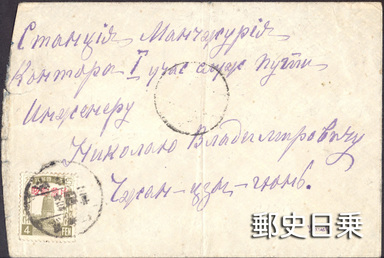 Станція Манчжурія
Контора I учас служ пути
Инженеру
Николаю Владиміровичу
Чжан-цзы-гюнь.
4
郵史日乗